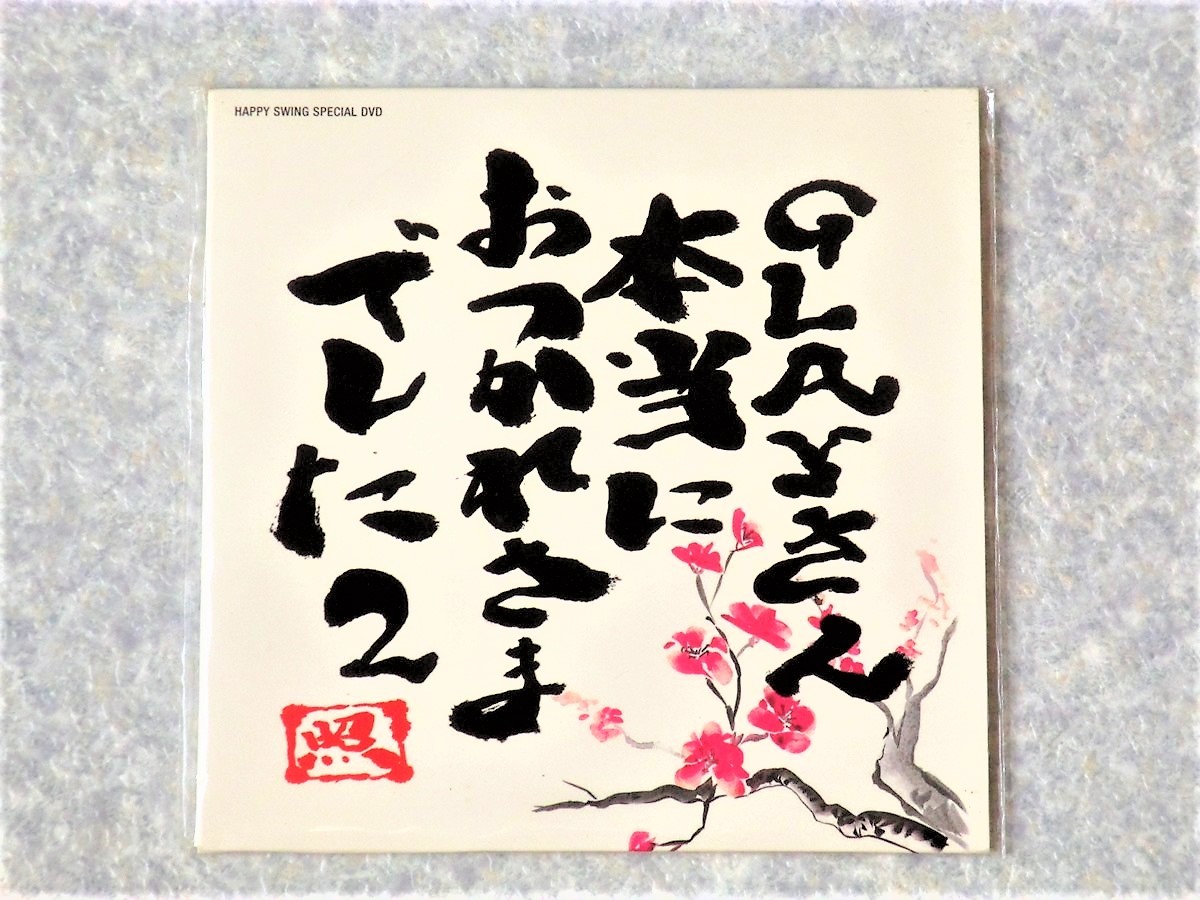 HAPPY SWING SPECIAL DVD
GLAYさん
本当に
おつかれさま
でした2
照